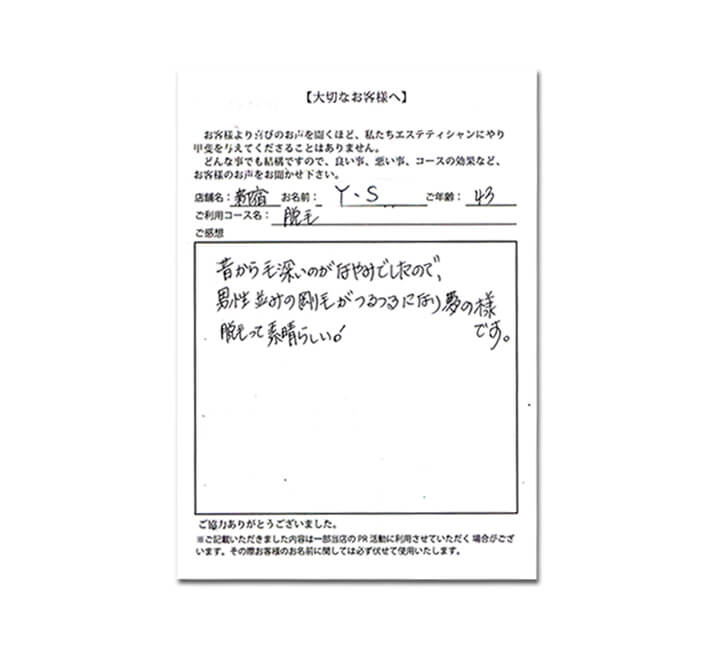 【大切なお客様へ】
お客様より喜びのお声を聞くほど、私たちエステティシャンにやり
甲斐を与えてくださることはありません。
どんな事でも結構ですので、良い事、悪い事、コースの効果など、
お客様のお声をお聞かせ下さい。
店舗名：新宿 お名前：Y・S ご年齢：43
ご利用コース名：脱毛
ご感想
昔から毛深いのがなやみでしたので、
男性並みの剛毛がつるつるになり夢の様
です。
脱毛って素晴らしい!
ご協力ありがとうございました。
※ご記載いただきました内容は一部当店のPR活動に利用させていただく場合がござ
います。その際お客様のお名前に関しては必ず伏せて使用いたします。